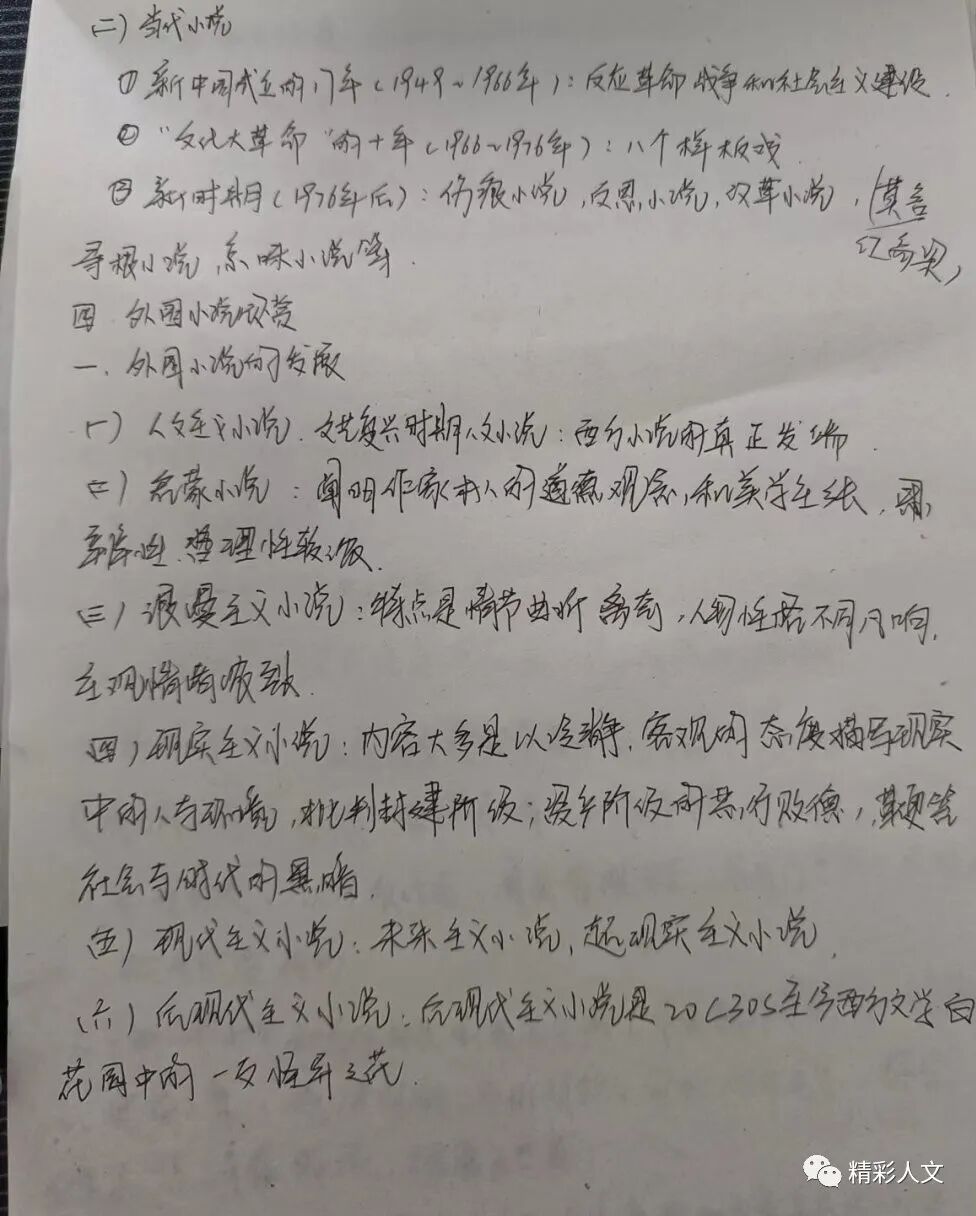 (二)当代小说
① 新中国成立的17年(1949~1966年):反应革命战争和社会主义建设.
② "文化大革命"的十年(1966~1976年):八个样板戏
③ 新时期(1976年后):伤痕小说,反思小说,改革小说,
(莫言
红高粱)
寻根小说,京味小说等.
四 外国小说欣赏
一. 外国小说的发展
(一) 人文主义小说. 文艺复兴时期人文小说:西方小说的真正发端.
(二) 启蒙小说:阐明作家本人的道德观念,和美学主张,
哲理性较浓.
(三) 浪漫主义小说:特点是情节曲折离奇,人物性格不同凡响,
主观情绪浓烈.
(四) 现实主义小说:内容大多是以冷静,客观的态度描写现实
中的人与环境,批判封建阶级;资产阶级的恶行败德,
社会与时代的黑暗.
(五) 现代主义小说:未来主义小说,超现实主义小说
(六) 后现代主义小说:后现代主义小说是20C30S至今西方文学百
花园中的一支怪异之花.
精彩人文